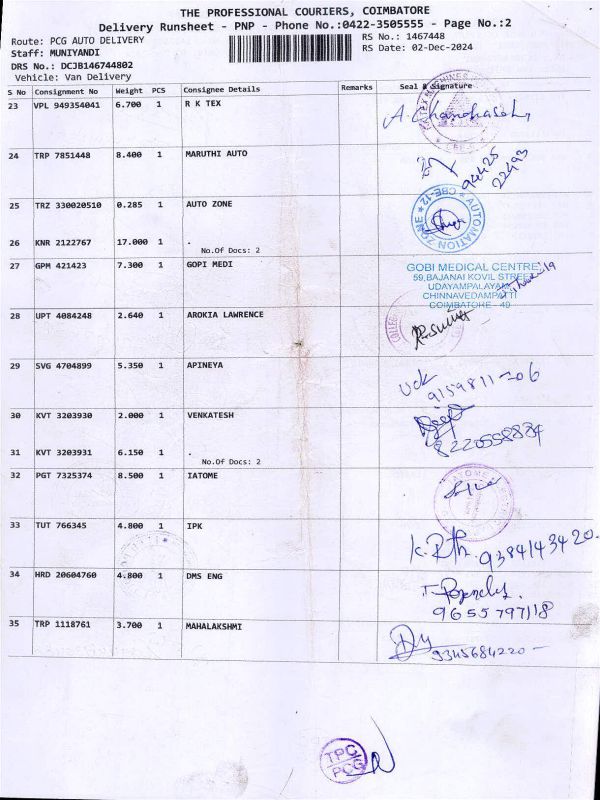 THE PROFESSIONAL COURIERS, COIMBATORE
Delivery Runsheet - PNP - Phone No.:0422-3505555 - Page No.:2
Route: PCG AUTO DELIVERY
RS No.: 1467448
Staff: MUNIYANDI
RS Date: 02-Dec-2024
DRS No.: DCJB146744802
Vehicle: Van Delivery
S No Consignment No Weight PCS Consignee Details Remarks Seal & Signature
23 VPL 949354041 6.700 1 R K TEX
24 TRP 7851448 8.400 1 MARUTHI AUTO
94425
22493
25 TRZ 330020510 0.285 1 AUTO ZONE
AUTOMATION ZONE * CBE-12 *
26 KNR 2122767 17.000 1 .
No.Of Docs: 2
27 GPM 421423 7.300 1 GOPI MEDI
GOBI MEDICAL CENTRE
59,BAJANAI KOVIL STREET
UDAYAMPALAYAM
CHINNAVEDAMPATTI
COIMBATORE - 49
28 UPT 4084248 2.640 1 AROKIA LAWRENCE
29 SVG 4704899 5.350 1 APINEYA
9159811206
30 KVT 3203930 2.000 1 VENKATESH
8220558884
31 KVT 3203931 6.150 1 .
No.Of Docs: 2
32 PGT 7325374 8.500 1 IATOME
33 TUT 766345 4.800 1 IPK
9384143420.
34 HRD 20604760 4.800 1 DMS ENG
9655797118
35 TRP 1118761 3.700 1 MAHALAKSHMI
9345684220 -
TPC
PCG